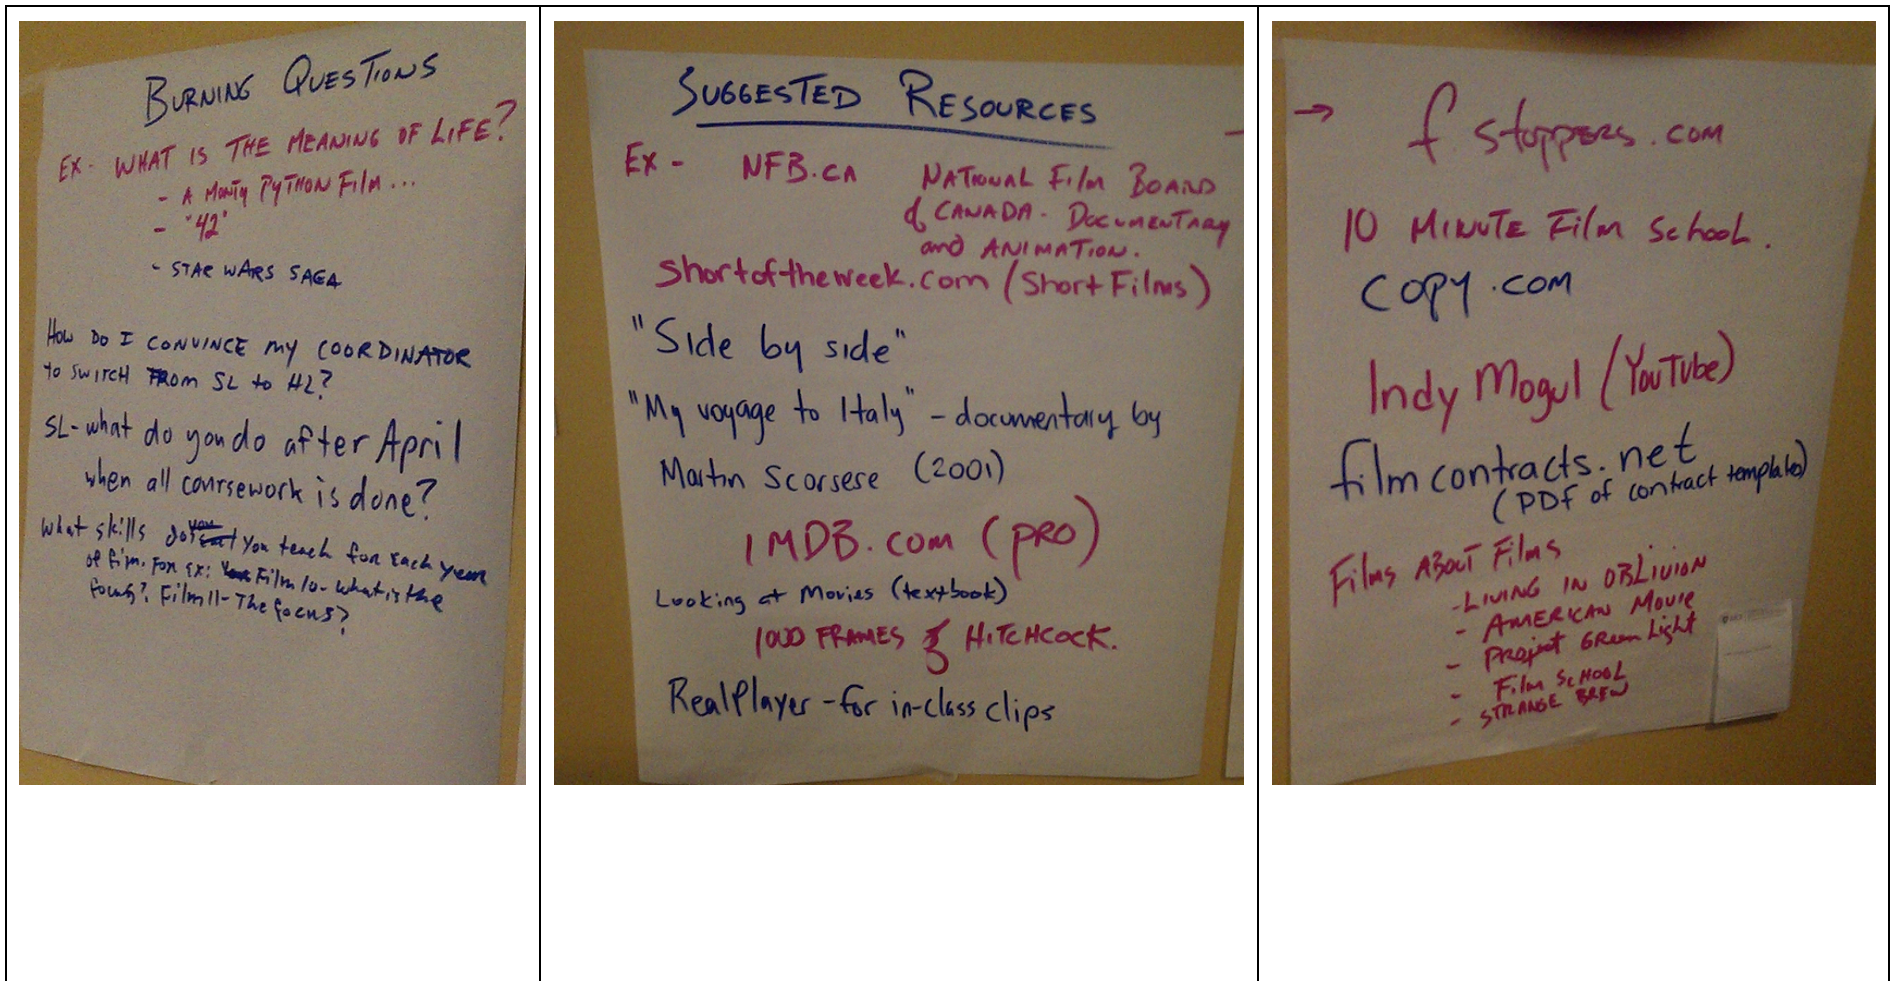 BURNING QUESTIONS
EX- WHAT IS THE MEANING OF LIFE?
- A MONTY PYTHON FILM...
- "42"
- STAR WARS SAGA
HOW DO I CONVINCE MY COORDINATOR
to SWITCH FROM SL to HL?
SL- what do you do after April
when all coursework is done?
What skills do you teach for each year
of film. For ex: Film 10- what is the
focus? Film 11- The focus?
SUGGESTED RESOURCES
Ex - NFB.CA NATIONAL FILM BOARD
of CANADA. DOCUMENTARY
and ANIMATION.
shortoftheweek.com (Short Films)
"Side by side"
"My voyage to Italy" - documentary by
Martin Scorsese (2001)
IMDB.COM (PRO)
Looking at Movies (textbook)
1000 FRAMES of HITCHCOCK.
RealPlayer - for in-class clips
→ f stoppers.com
10 MINUTE Film School.
copy.com
Indy Mogul (YouTube)
filmcontracts.net
(PDF of contract templates)
Films ABOUT Films
- LIVING IN OBLIVION
- AMERICAN MOVIE
- Project GREEN Light
- Film SCHOOL
- STRANGE BREW